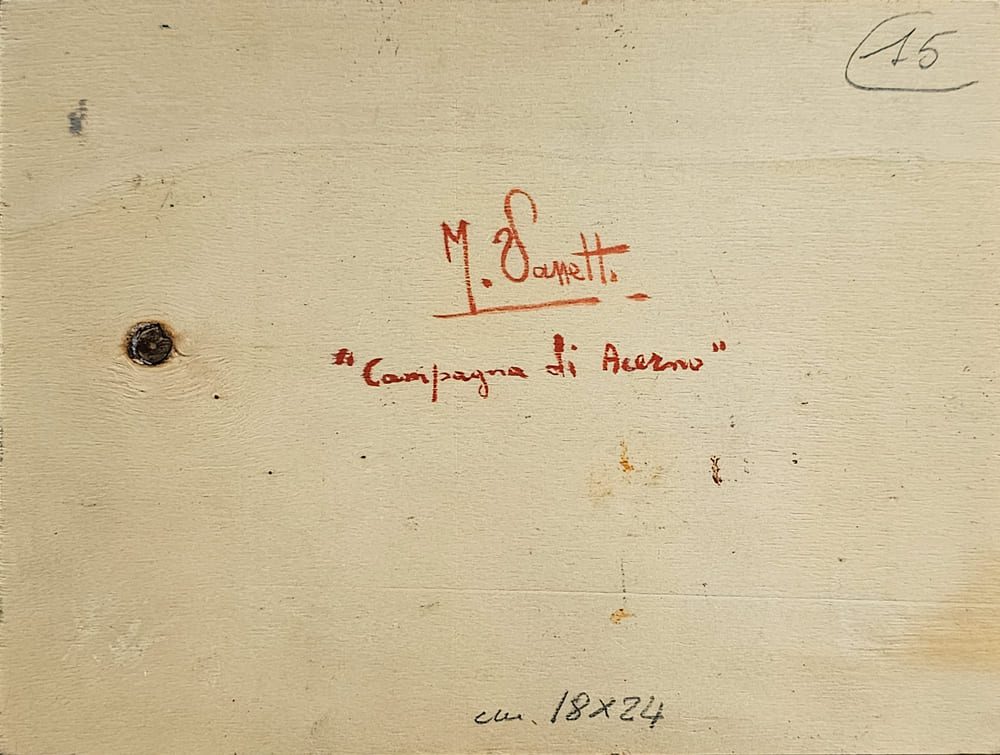 15
M.
"Campagna di Acerno"
cm. 18x24